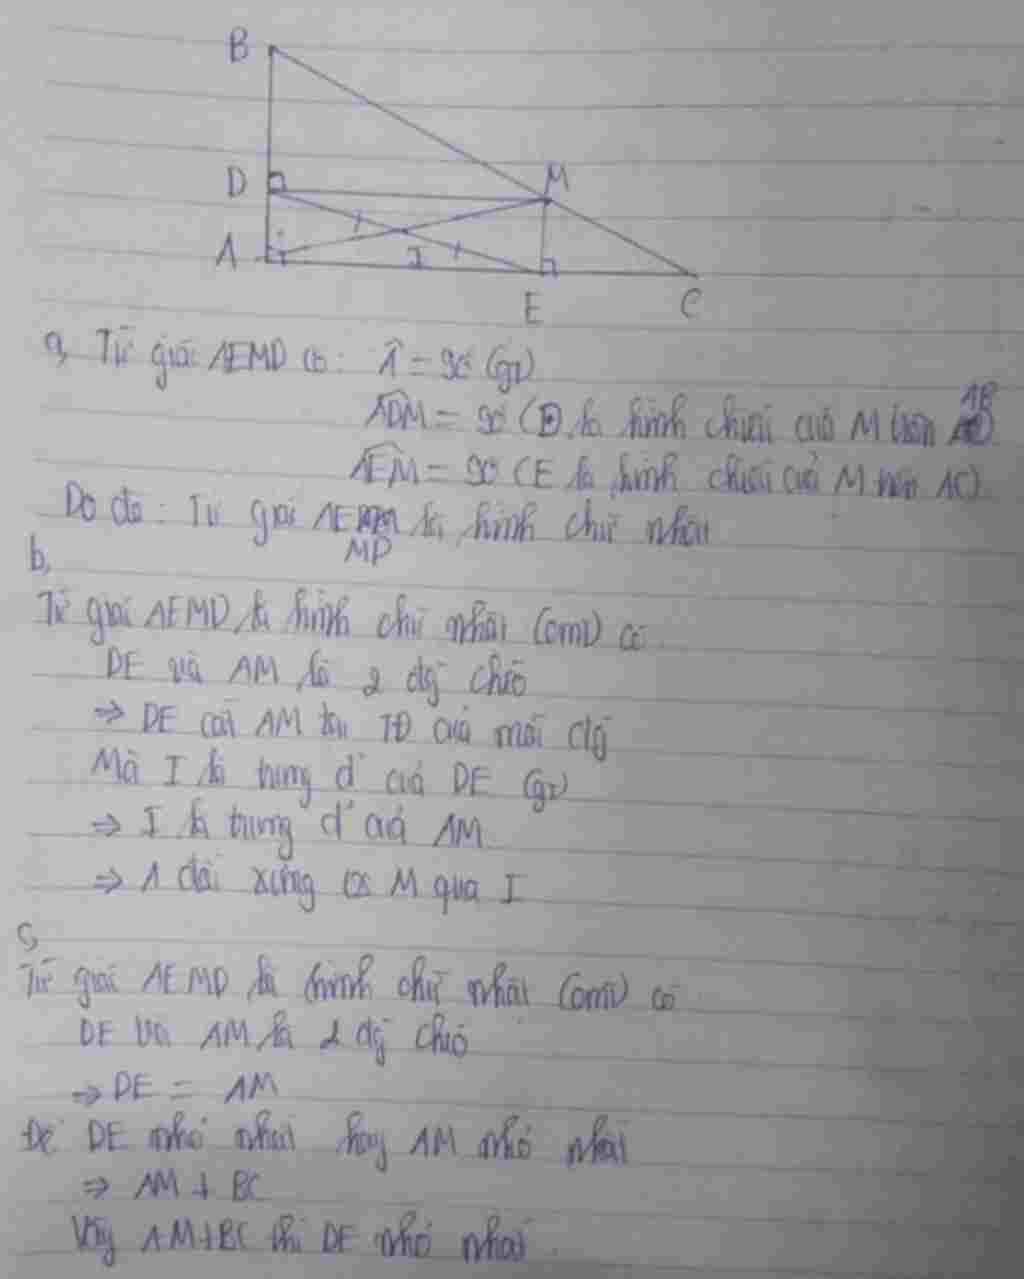 B
D
M
A
I
E
C
a, Tứ giác AEMD có: Â = 90° (gt)
ADM = 90° (D là hình chiếu của M trên AB)
AEM = 90° (E là hình chiếu của M trên AC)
Do đó: Tứ giác AEMD là hình chữ nhật
b,
Tứ giác AEMD là hình chữ nhật (cmt) có
DE và AM là 2 đg chéo
⇒ DE cắt AM tại TĐ của mỗi đg
Mà I là trung đ' của DE (gt)
⇒ I là trung đ' của AM
⇒ A đối xứng vs M qua I
c,
Tứ giác AEMD là hình chữ nhật (cmt) có
DE và AM là 2 đg chéo
⇒ DE = AM
Để DE nhỏ nhất hay AM nhỏ nhất
⇒ AM ⊥ BC
Vậy AM⊥BC thì DE nhỏ nhất